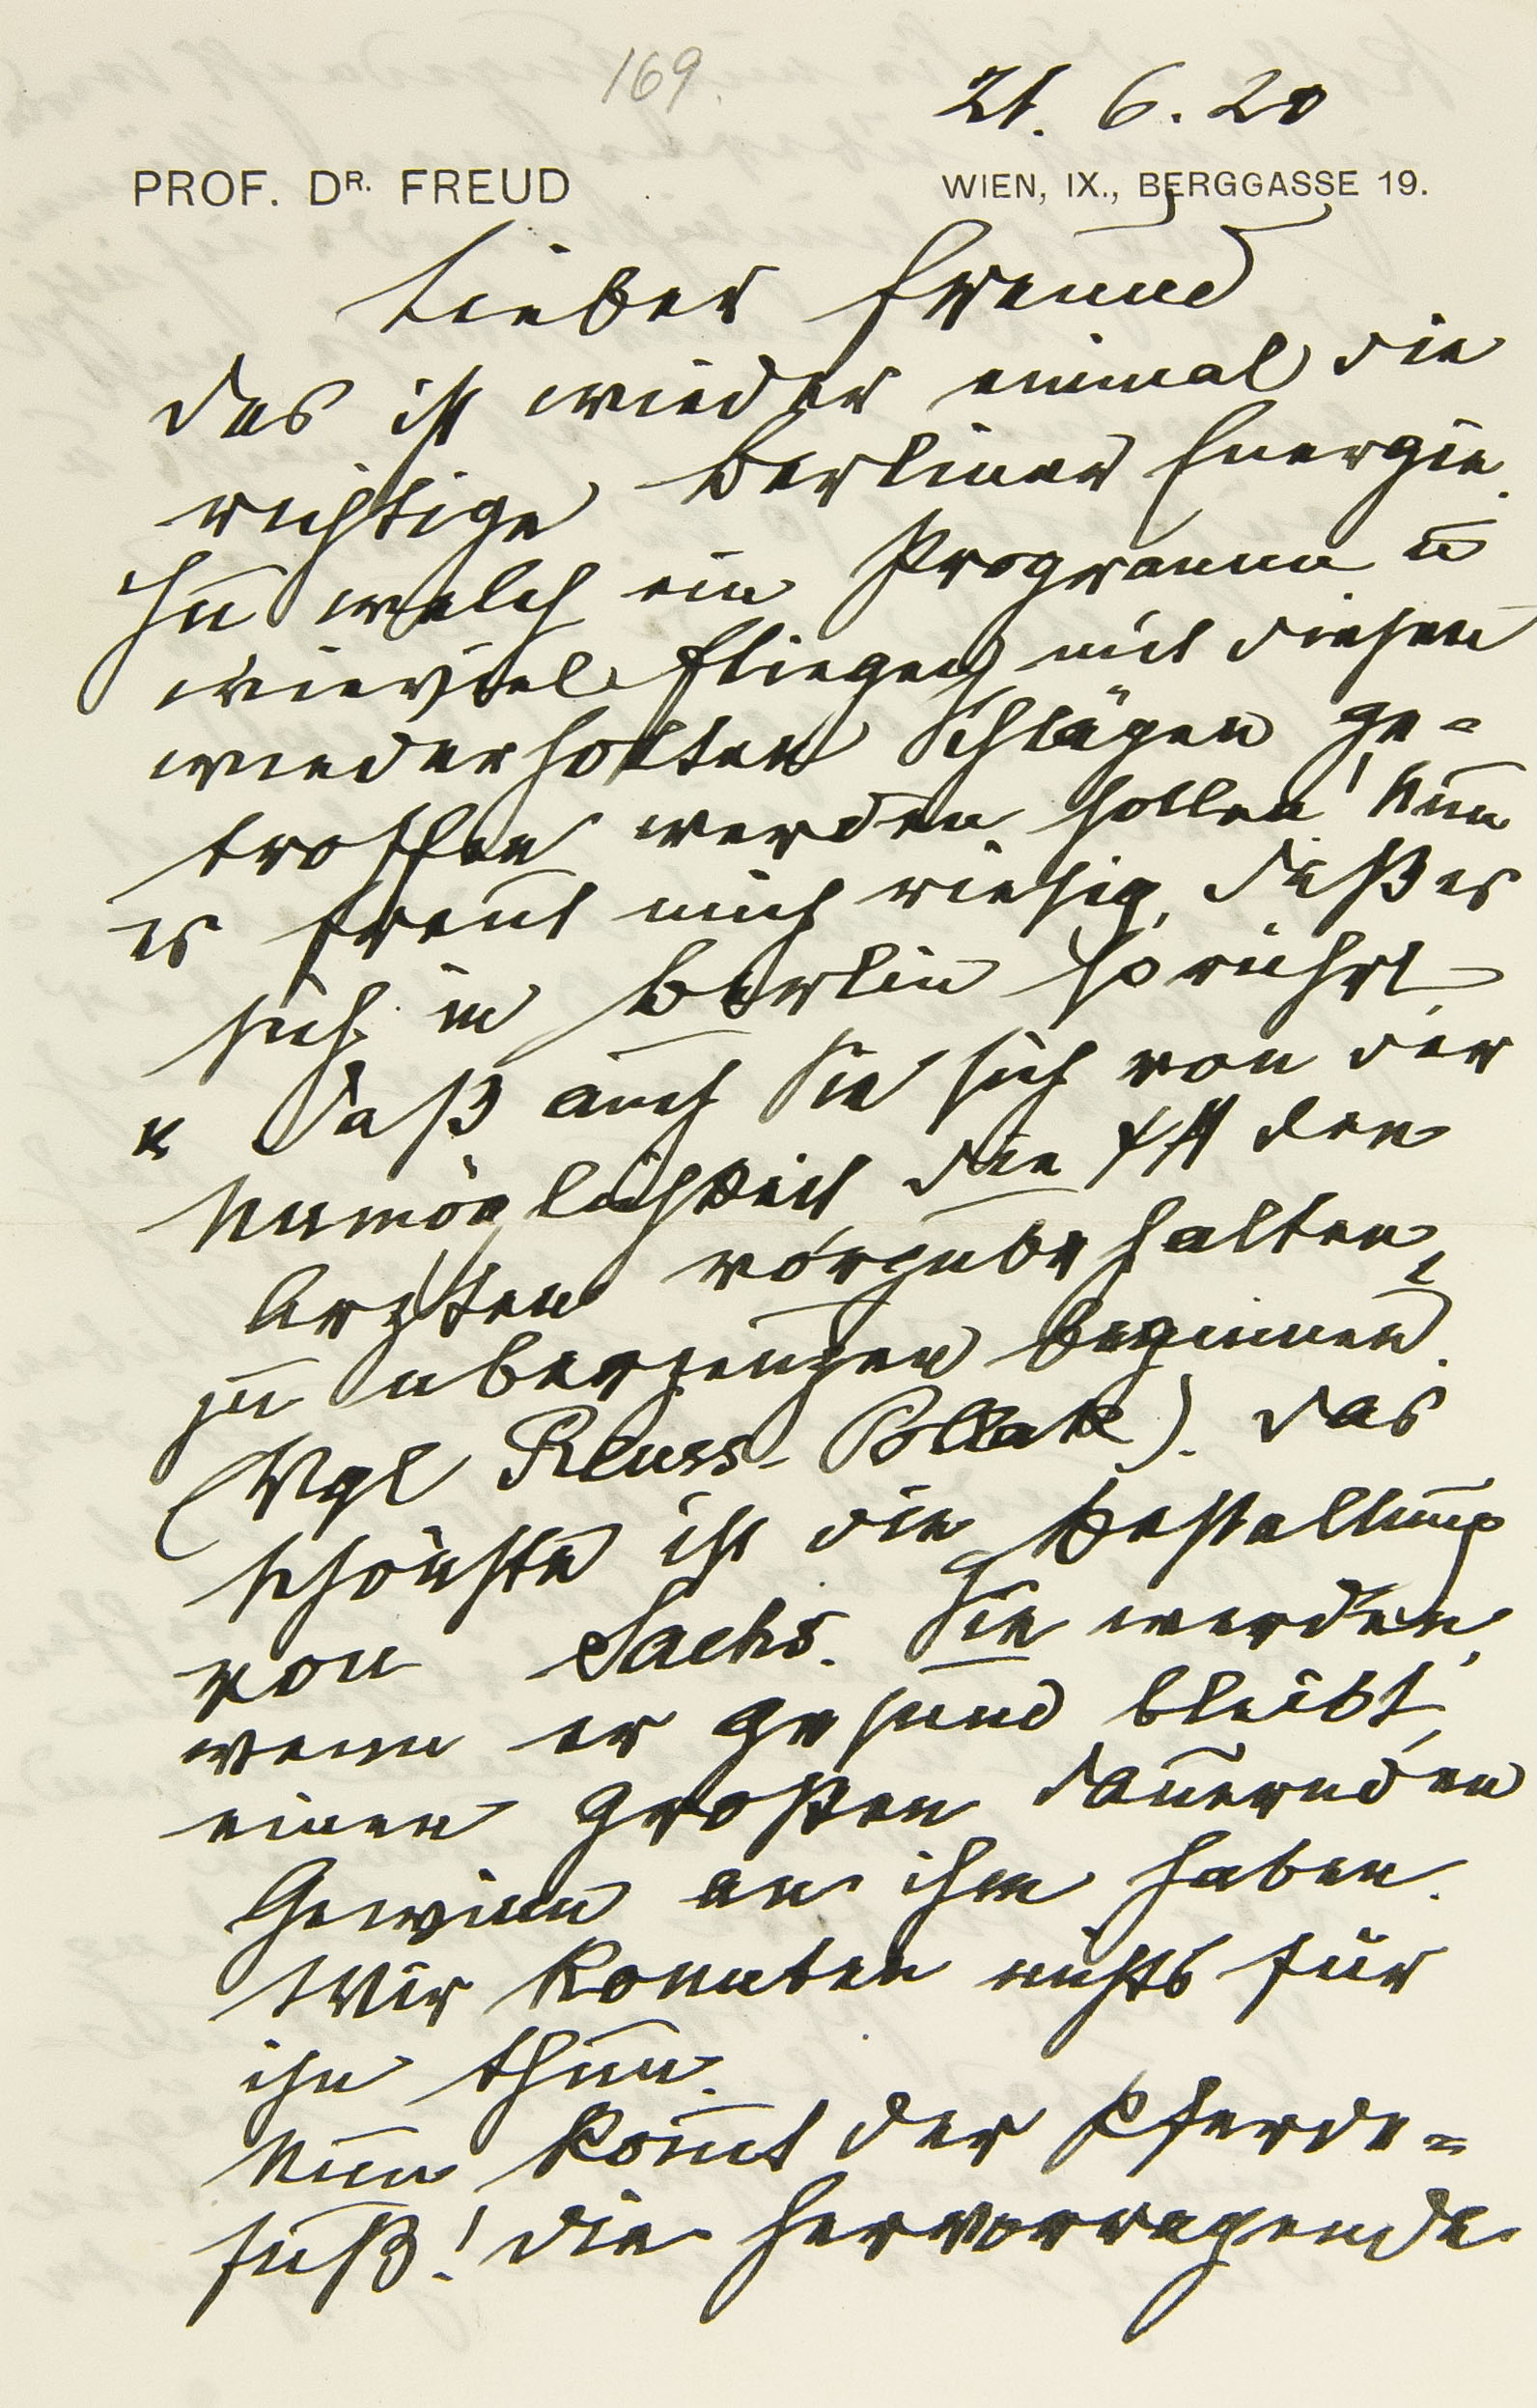 169.
21. 6. 20
PROF. DR. FREUD
WIEN, IX., BERGGASSE 19.
Lieber Freund
Das ist wieder einmal die
richtige Berliner Energie.
Hu welch ein Programm u
wieviel Fliegen mit diesen
wiederholten Schlägen ge-
troffen werden sollen! Nun
es freut mich riesig, daß es
sich in Berlin so rührt
u daß auch Sie sich von der
Unmöglichkeit die ψΑ den
Ärzten vorzubehalten,
zu überzeugen beginnen.
(Vgl Reuss-Pollak). Das
schönste ist die Bestallung
von Sachs. Sie werden,
wenn er gesund bleibt,
einen großen dauernden
Gewinn an ihm haben.
Wir konnten nichts für
ihn thun.
Nun kommt der Pferde-
fuß! die hervorragende